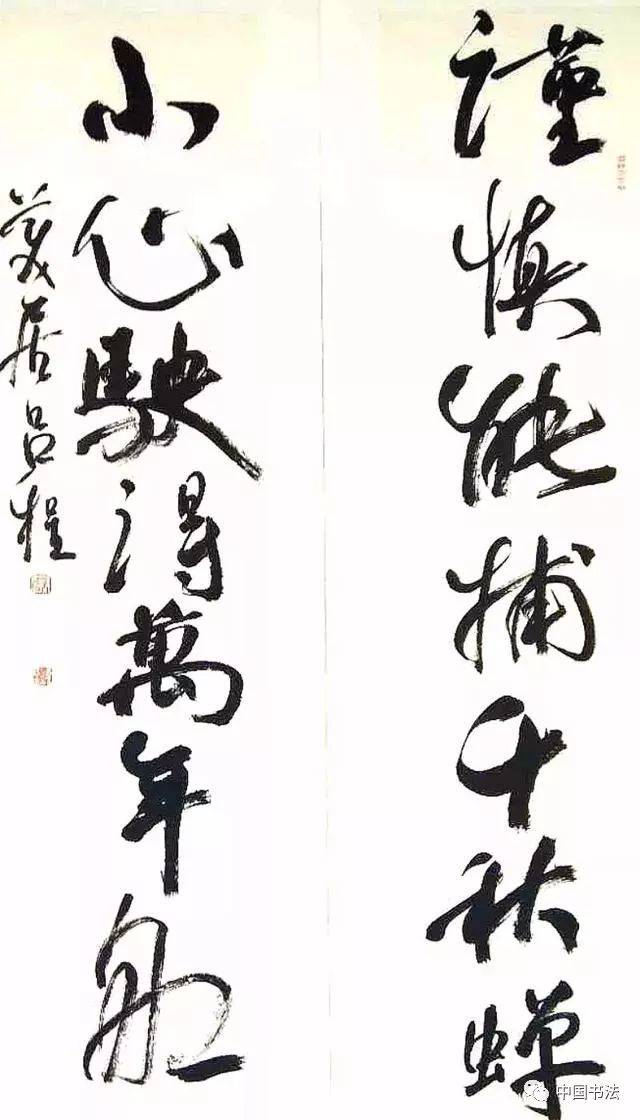 謹慎能捕千秋蝉
小心駛得萬年船
居吕程
中国书法